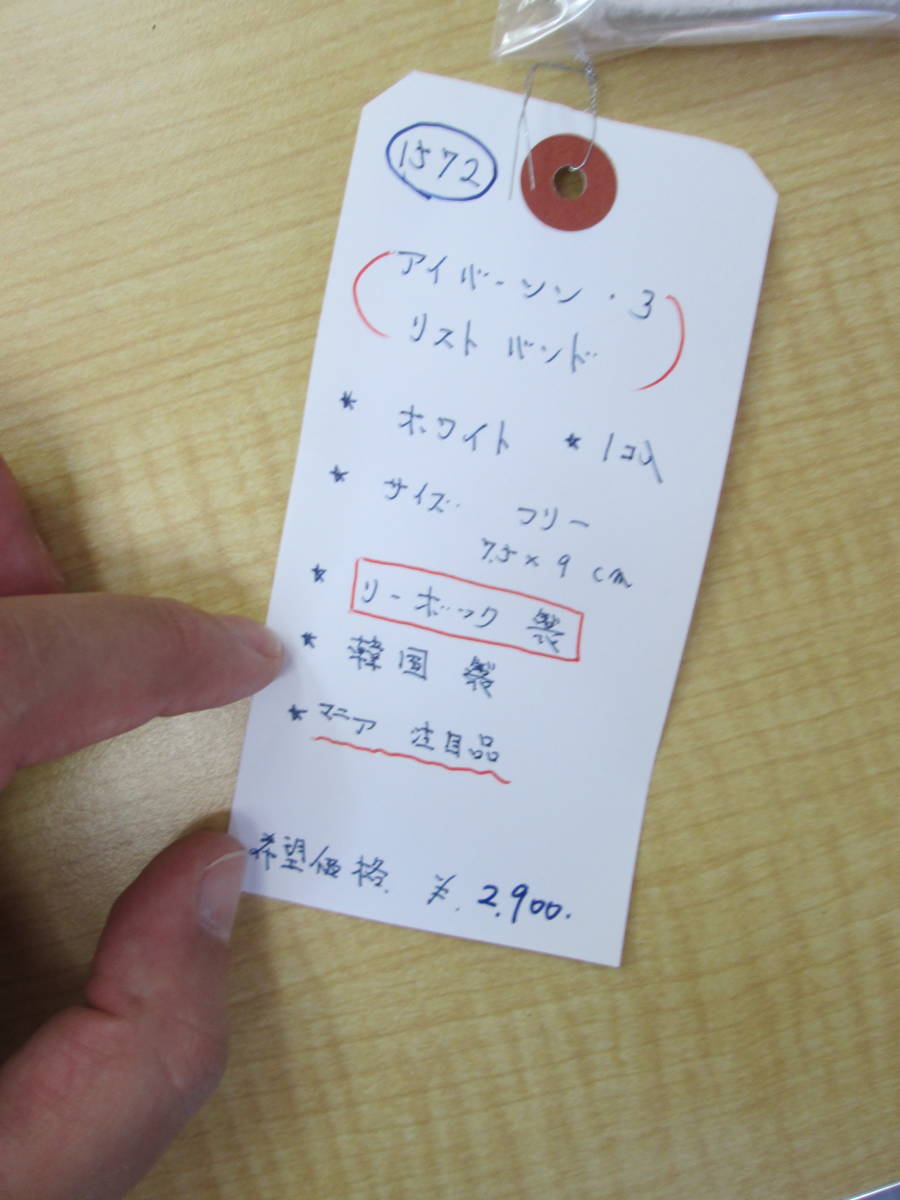 1572
アイバーソン・3
リストバンド
* ホワイト * 1コ入
* サイズ フリー
7.5×9cm
* リーボック製
* 韓国製
* マニア 注目品
希望価格. ¥. 2,900.